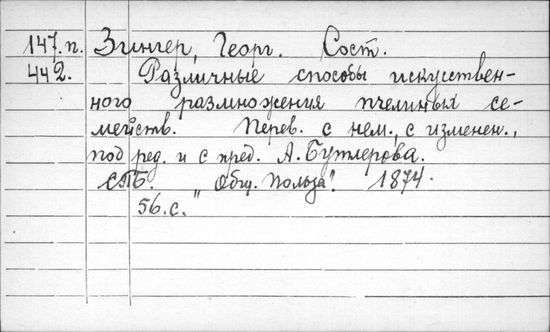 147.п. Зингер, Георг. Сост.
442. Различные способы искусствен-
ного размножения пчелиных се-
мейств. Перев. с нем., с изменен.,
под ред. и с пред. А. Бутлерова.
СПБ. "Общ. Польза". 1874.
56.с.